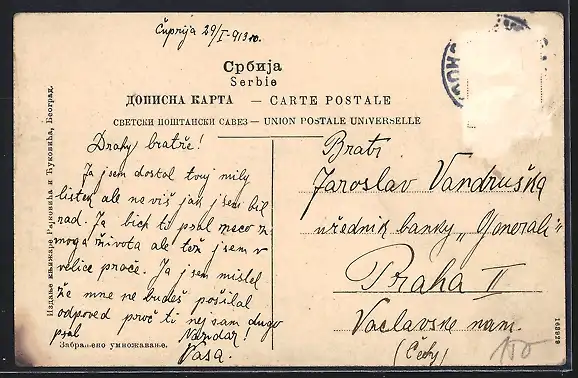 Ćuprija 29/I-913 10.
Србија
Serbie
ДОПИСНА КАРТА — CARTE POSTALE
СВЕТСКИ ПОШТАНСКИ САВЕЗ — UNION POSTALE UNIVERSELLE
Drahy bratře!
Ja jsem dostal tvoj mily
listek ale neviš jak jsem bil
rad. Ja bich to psal neco z
moga života ale tož jsem v
velice prače. Ja jsem mislel
že mne ne budeš pošilal
odpoved proč ti nejsam dugo
psal Nazdar!
Vasa.
Bratr
Jaroslav Vandruška
uřednik banky „Generali"
Praha II
Vaclavske nam.
(Čechy)
100
Издање књижаре Рајковића и Ћуковића, Београд.
Забрањено умножавање.
162929